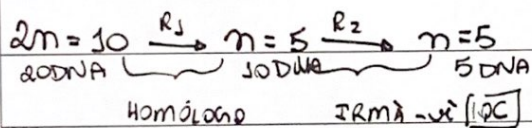 2n = 10 R1 → n = 5 R2 → n = 5
20DNA 10DNA 5 DNA
HOMÓLOGO IRMÃ